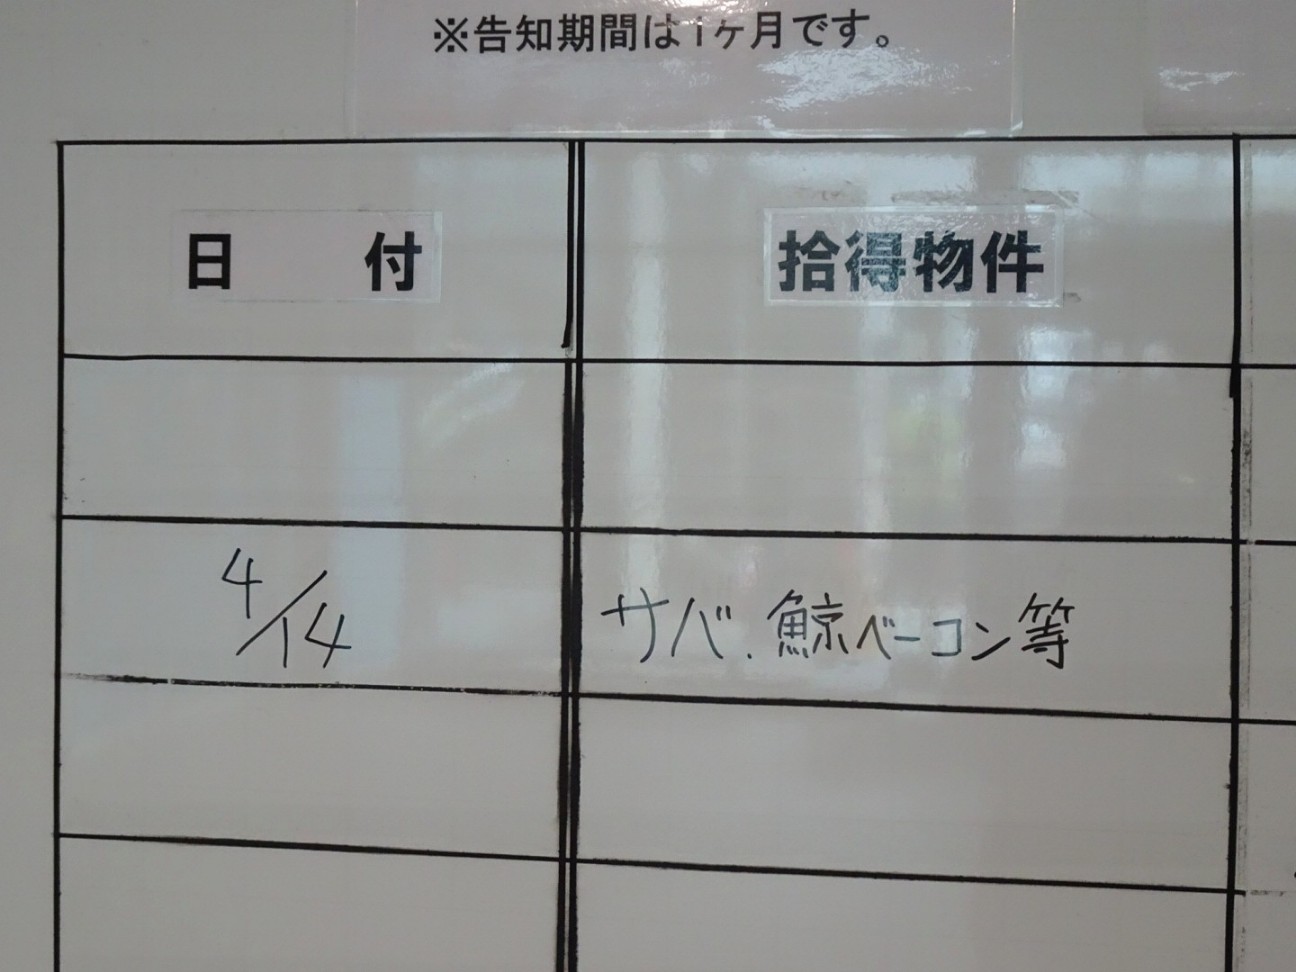 ※告知期間は1ヶ月です。
日 付
拾得物件
4/14
サバ、鯨ベーコン等